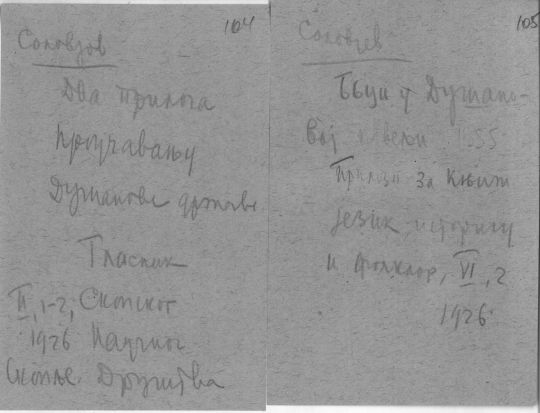 104
Соловјев
Два прилога
проучавању
Душанове државе
Гласник
II, 1-2, Скопског
1926 Научног
Скопље. Друштва
105
Соловјев
у Душано-
вој
Прилози за књиж
језик историју
и фолклор, VI, 2
1926